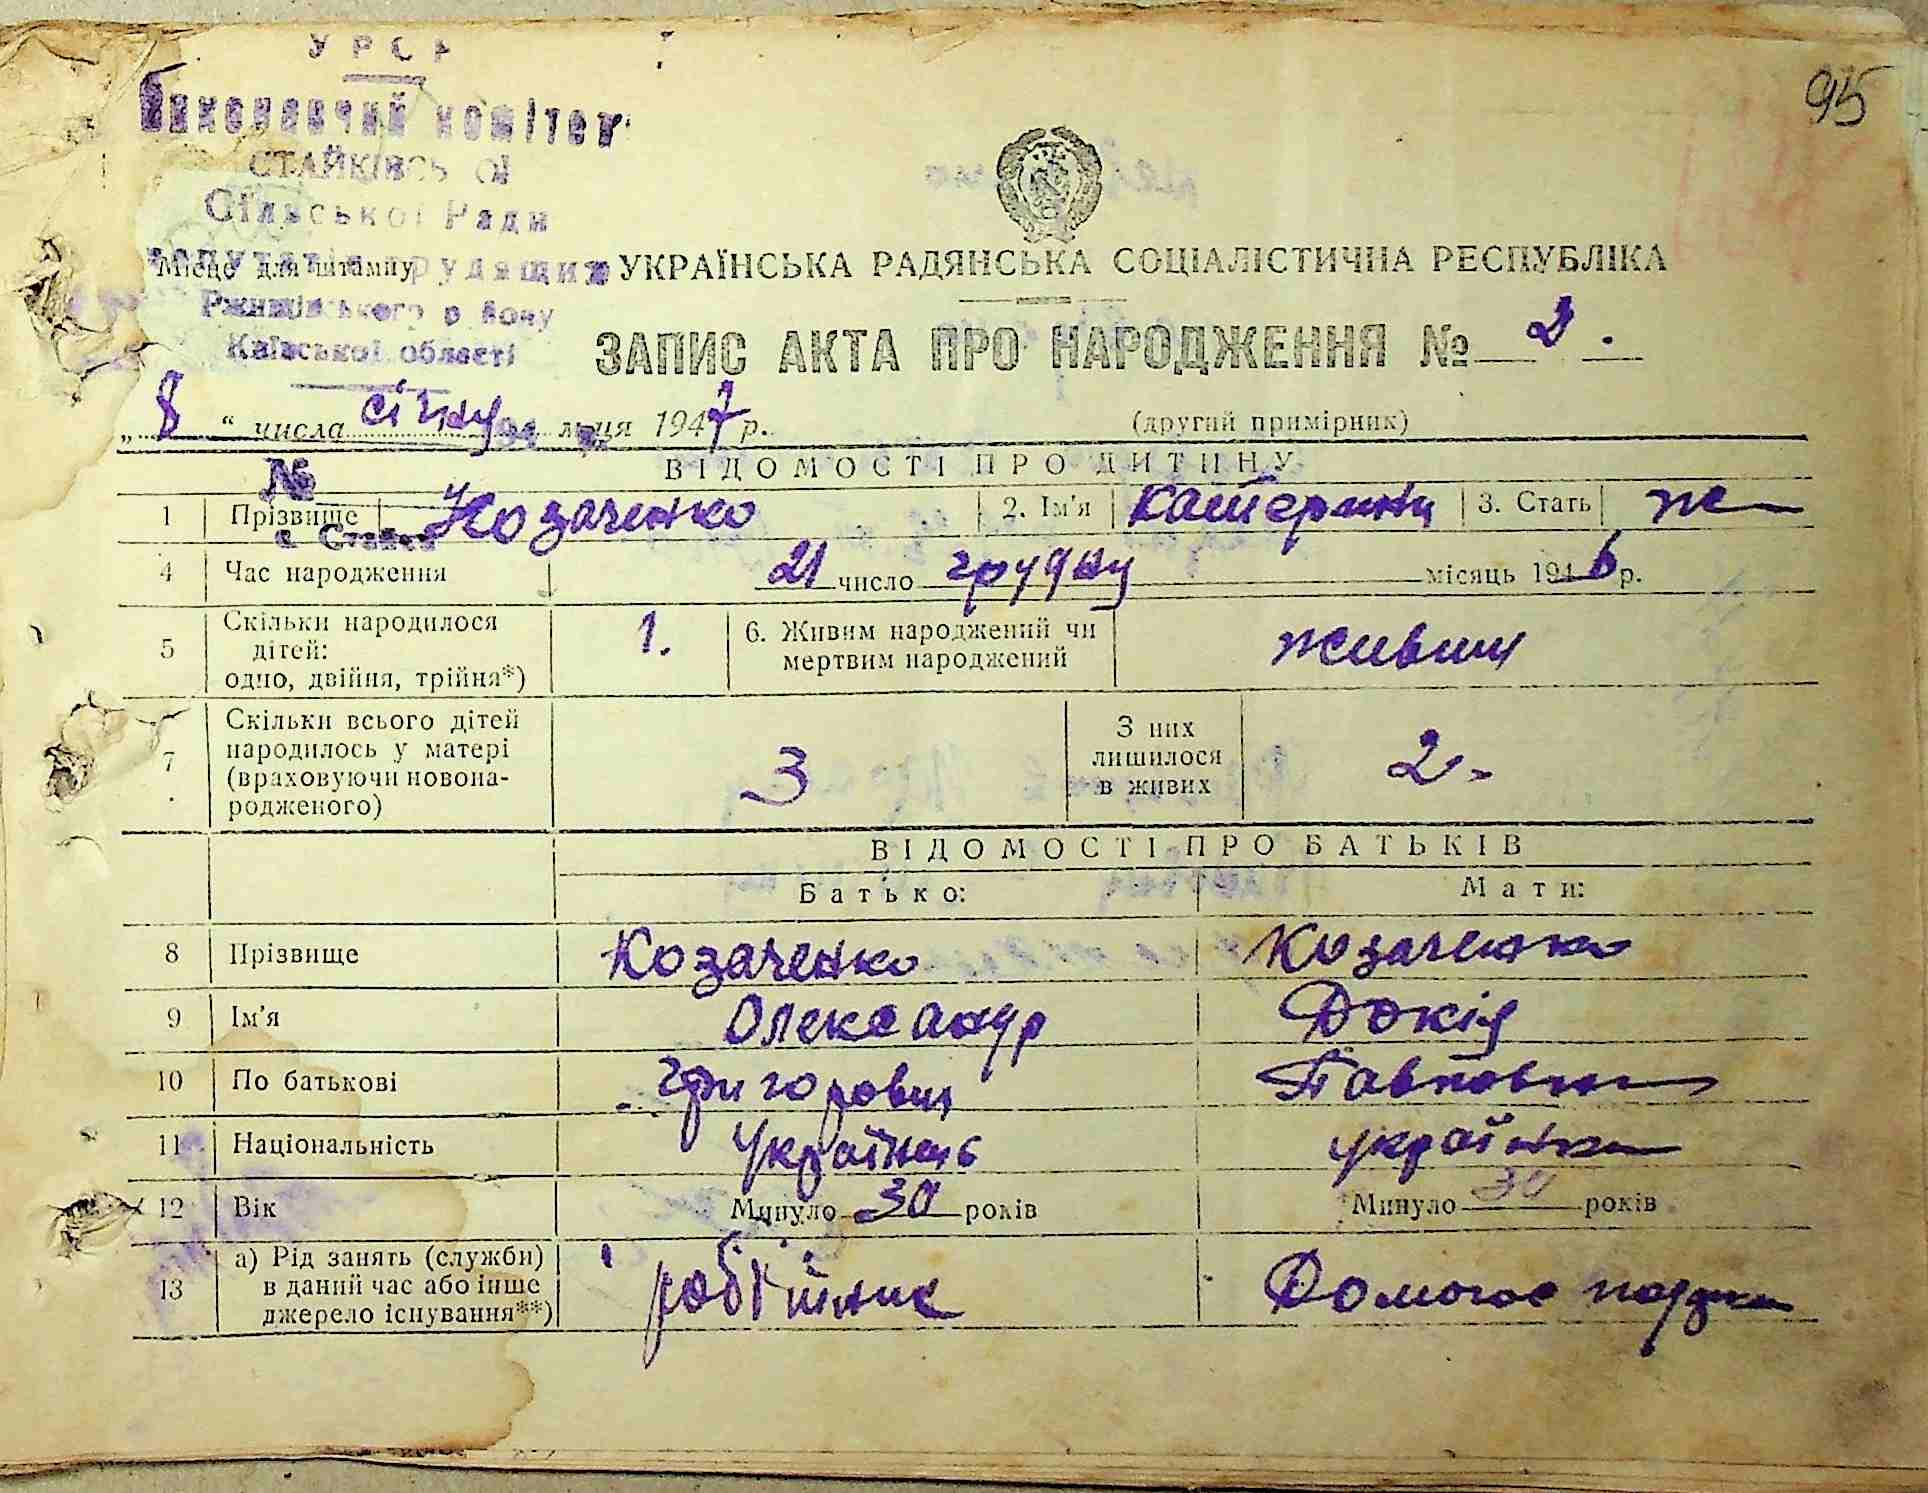 УРСР
Виконавчий комітет
СТАЙКІВСЬ ОЇ
Сільської Ради
депутатів трудящих
Місце для штампу
Ржищівського р йону
Київської області
95
УКРАЇНСЬКА РАДЯНСЬКА СОЦІАЛІСТИЧНА РЕСПУБЛІКА
ЗАПИС АКТА ПРО НАРОДЖЕННЯ № 2.
„ 8 “ числа січня місяця 1947 р.
(другий примірник)
№
с. Стайки
ВІДОМОСТІ ПРО ДИТИНУ
1 Прізвище Козаченко 2. Ім'я Катерина 3. Стать ж
4 Час народження 21 число грудня місяць 1946 р.
5 Скільки народилося дітей: одно, двійня, трійня*) 1. 6. Живим народжений чи мертвим народжений живим
7 Скільки всього дітей народилось у матері (враховуючи новонародженого) 3 З них лишилося в живих 2.
ВІДОМОСТІ ПРО БАТЬКІВ
Батько: Мати:
8 Прізвище Козаченко Козаченко
9 Ім'я Олександр Докія
10 По батькові Григорович Павловна
11 Національність Українець українка
12 Вік Минуло 30 років Минуло 30 років
13 а) Рід занять (служби) в даний час або інше джерело існування**) робітник Домогос подарка